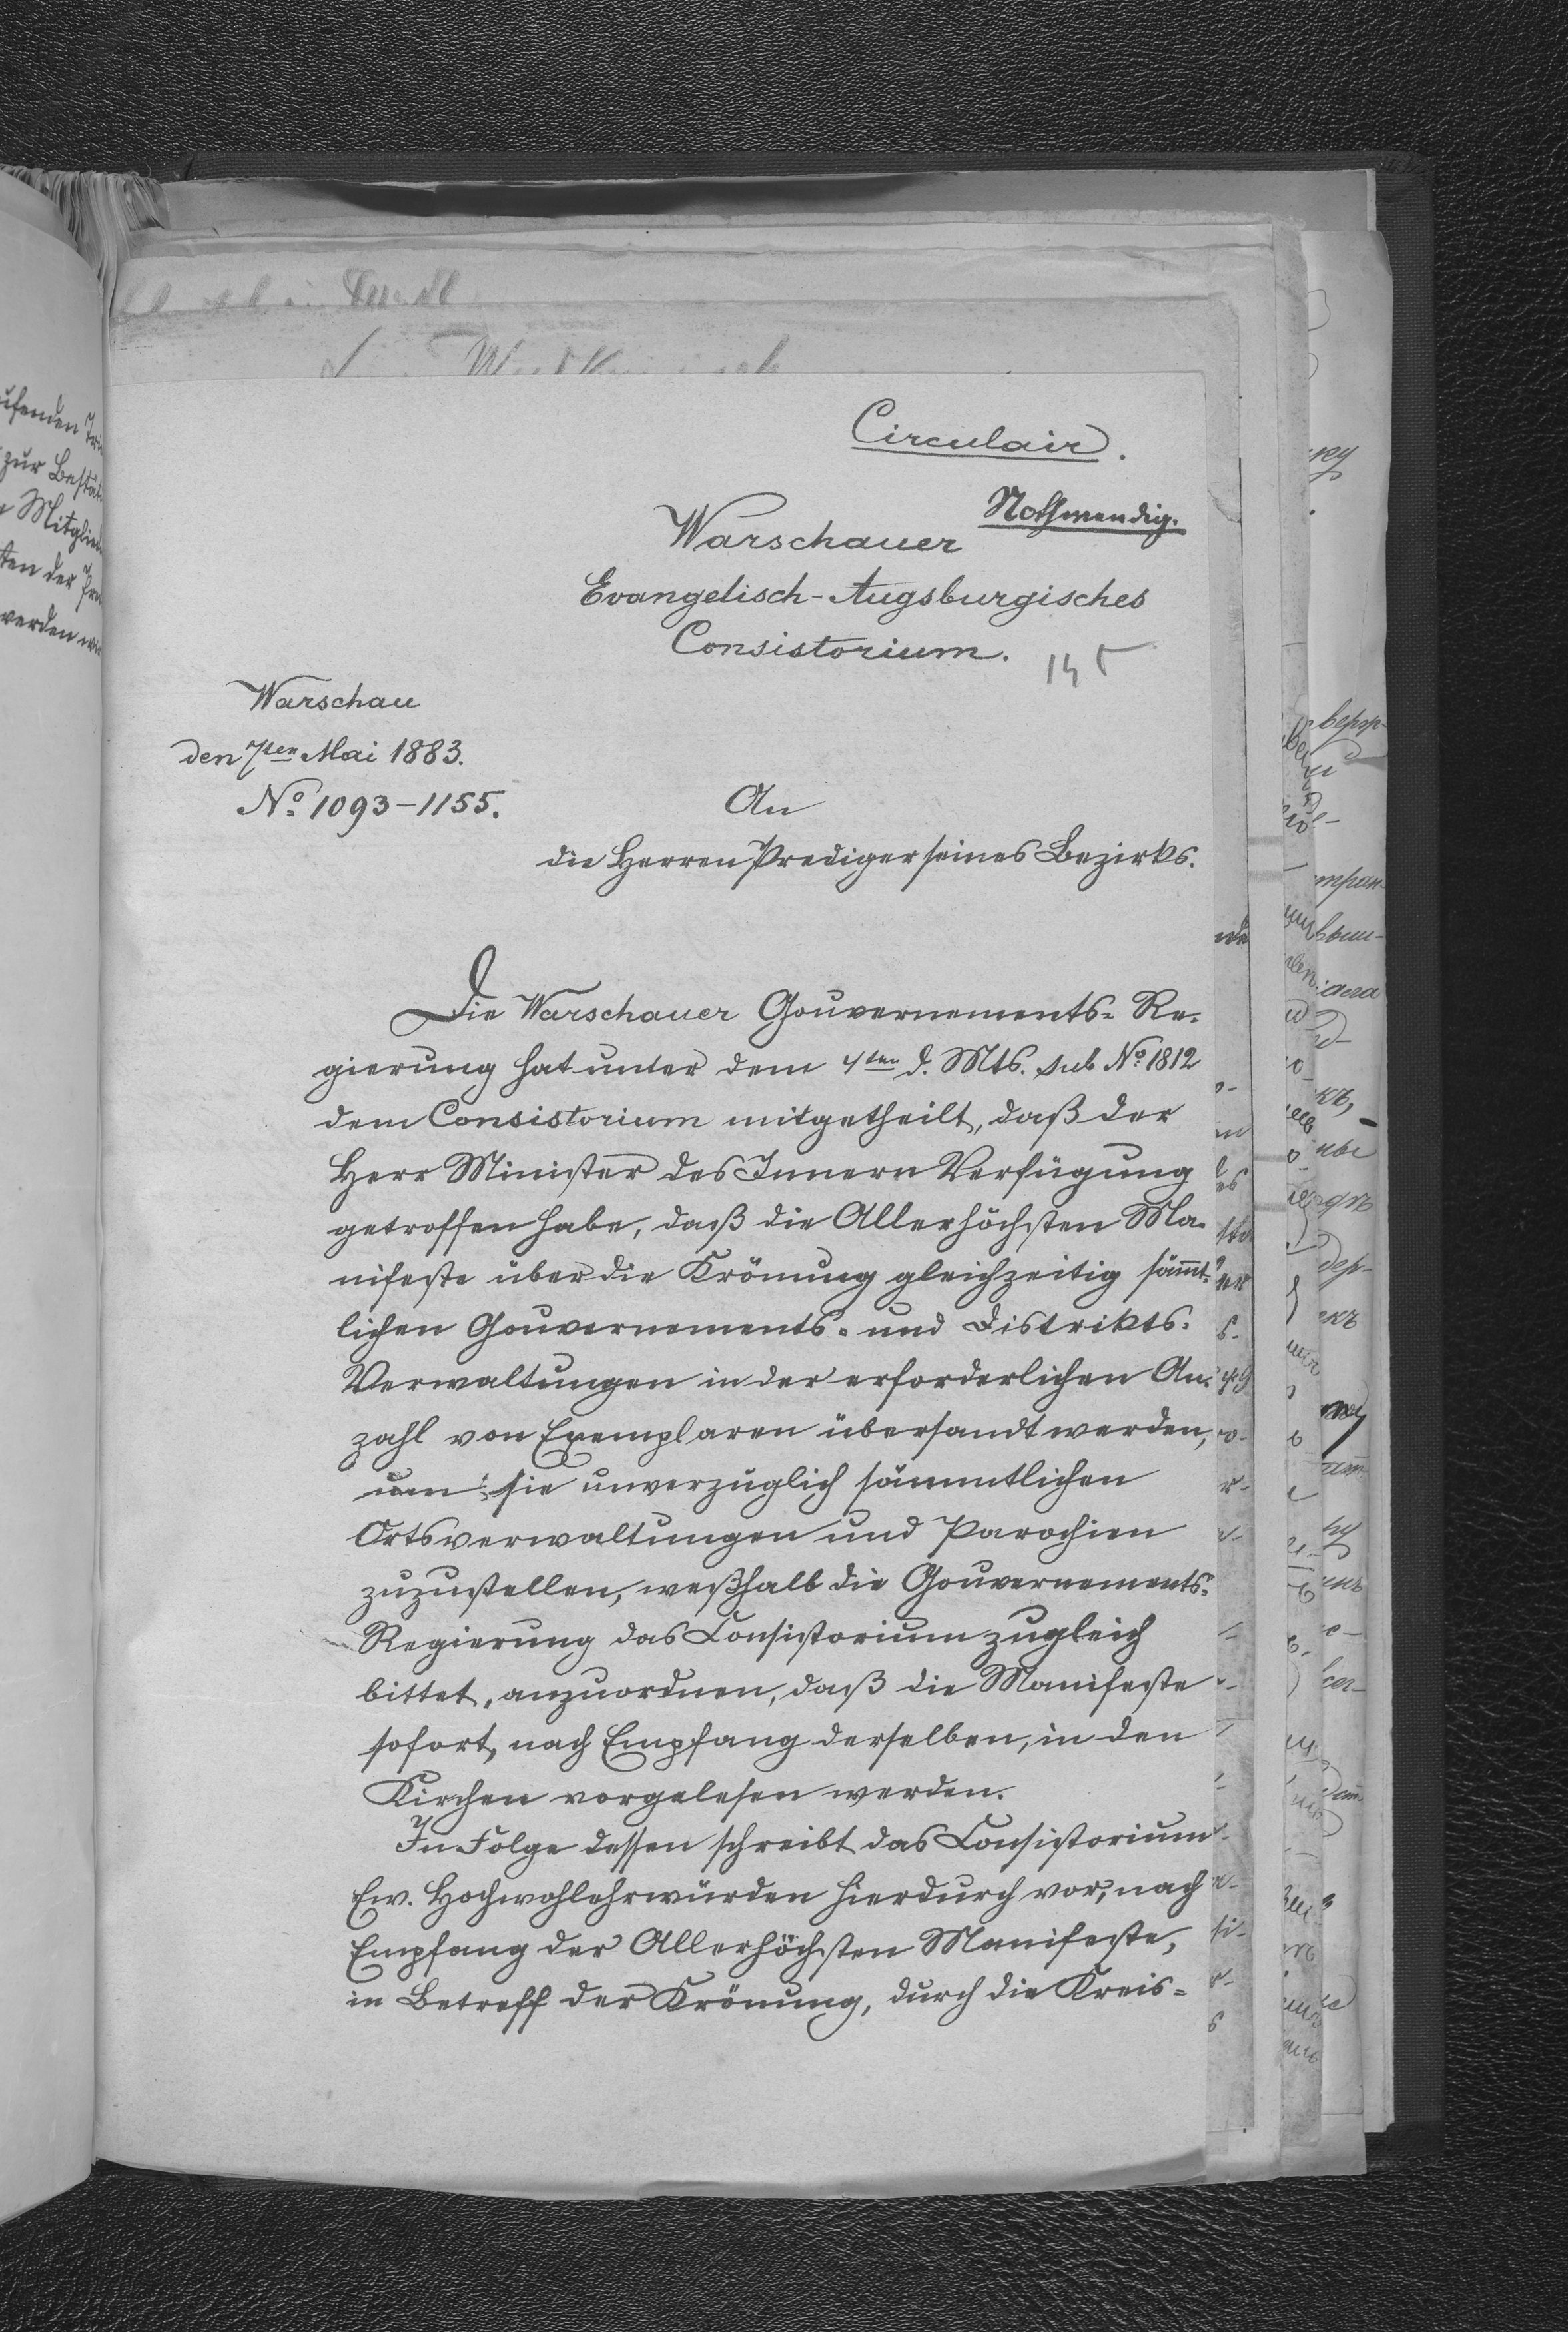 Circulair.
Nothwendig.
Warschauer
Evangelisch-Augsburgisches
Consistorium.
145
Warschau
den 7ten Mai 1883.
No. 1093-1155.
An
die Herren Prediger seines Bezirks.
Die Warschauer Gouvernements-Re-
gierung hat unter dem 4ten d. Mts. sub No. 1812
dem Consistorium mitgetheilt, daß der
Herr Minister des Innern Verfügung
getroffen habe, daß die Allerhöchsten Ma-
nifeste über die Krönung gleichzeitig sämt-
lichen Gouvernements- und Distrikts-
Verwaltungen in der erforderlichen An-
zahl von Exemplaren übersandt werden,
um sie unverzüglich sämmtlichen
Ortsverwaltungen und Parochien
zuzustellen, weßhalb die Gouvernements-
Regierung das Consistorium zugleich
bittet, anzuordnen, daß die Manifeste
sofort, nach Empfang derselben, in den
Kirchen vorgelesen werden.
In Folge dessen schreibt das Consistorium
Ew. Hochwohlehrwürden hierdurch vor, nach
Empfang der Allerhöchsten Manifeste,
in Betreff der Krönung, durch die Kreis-